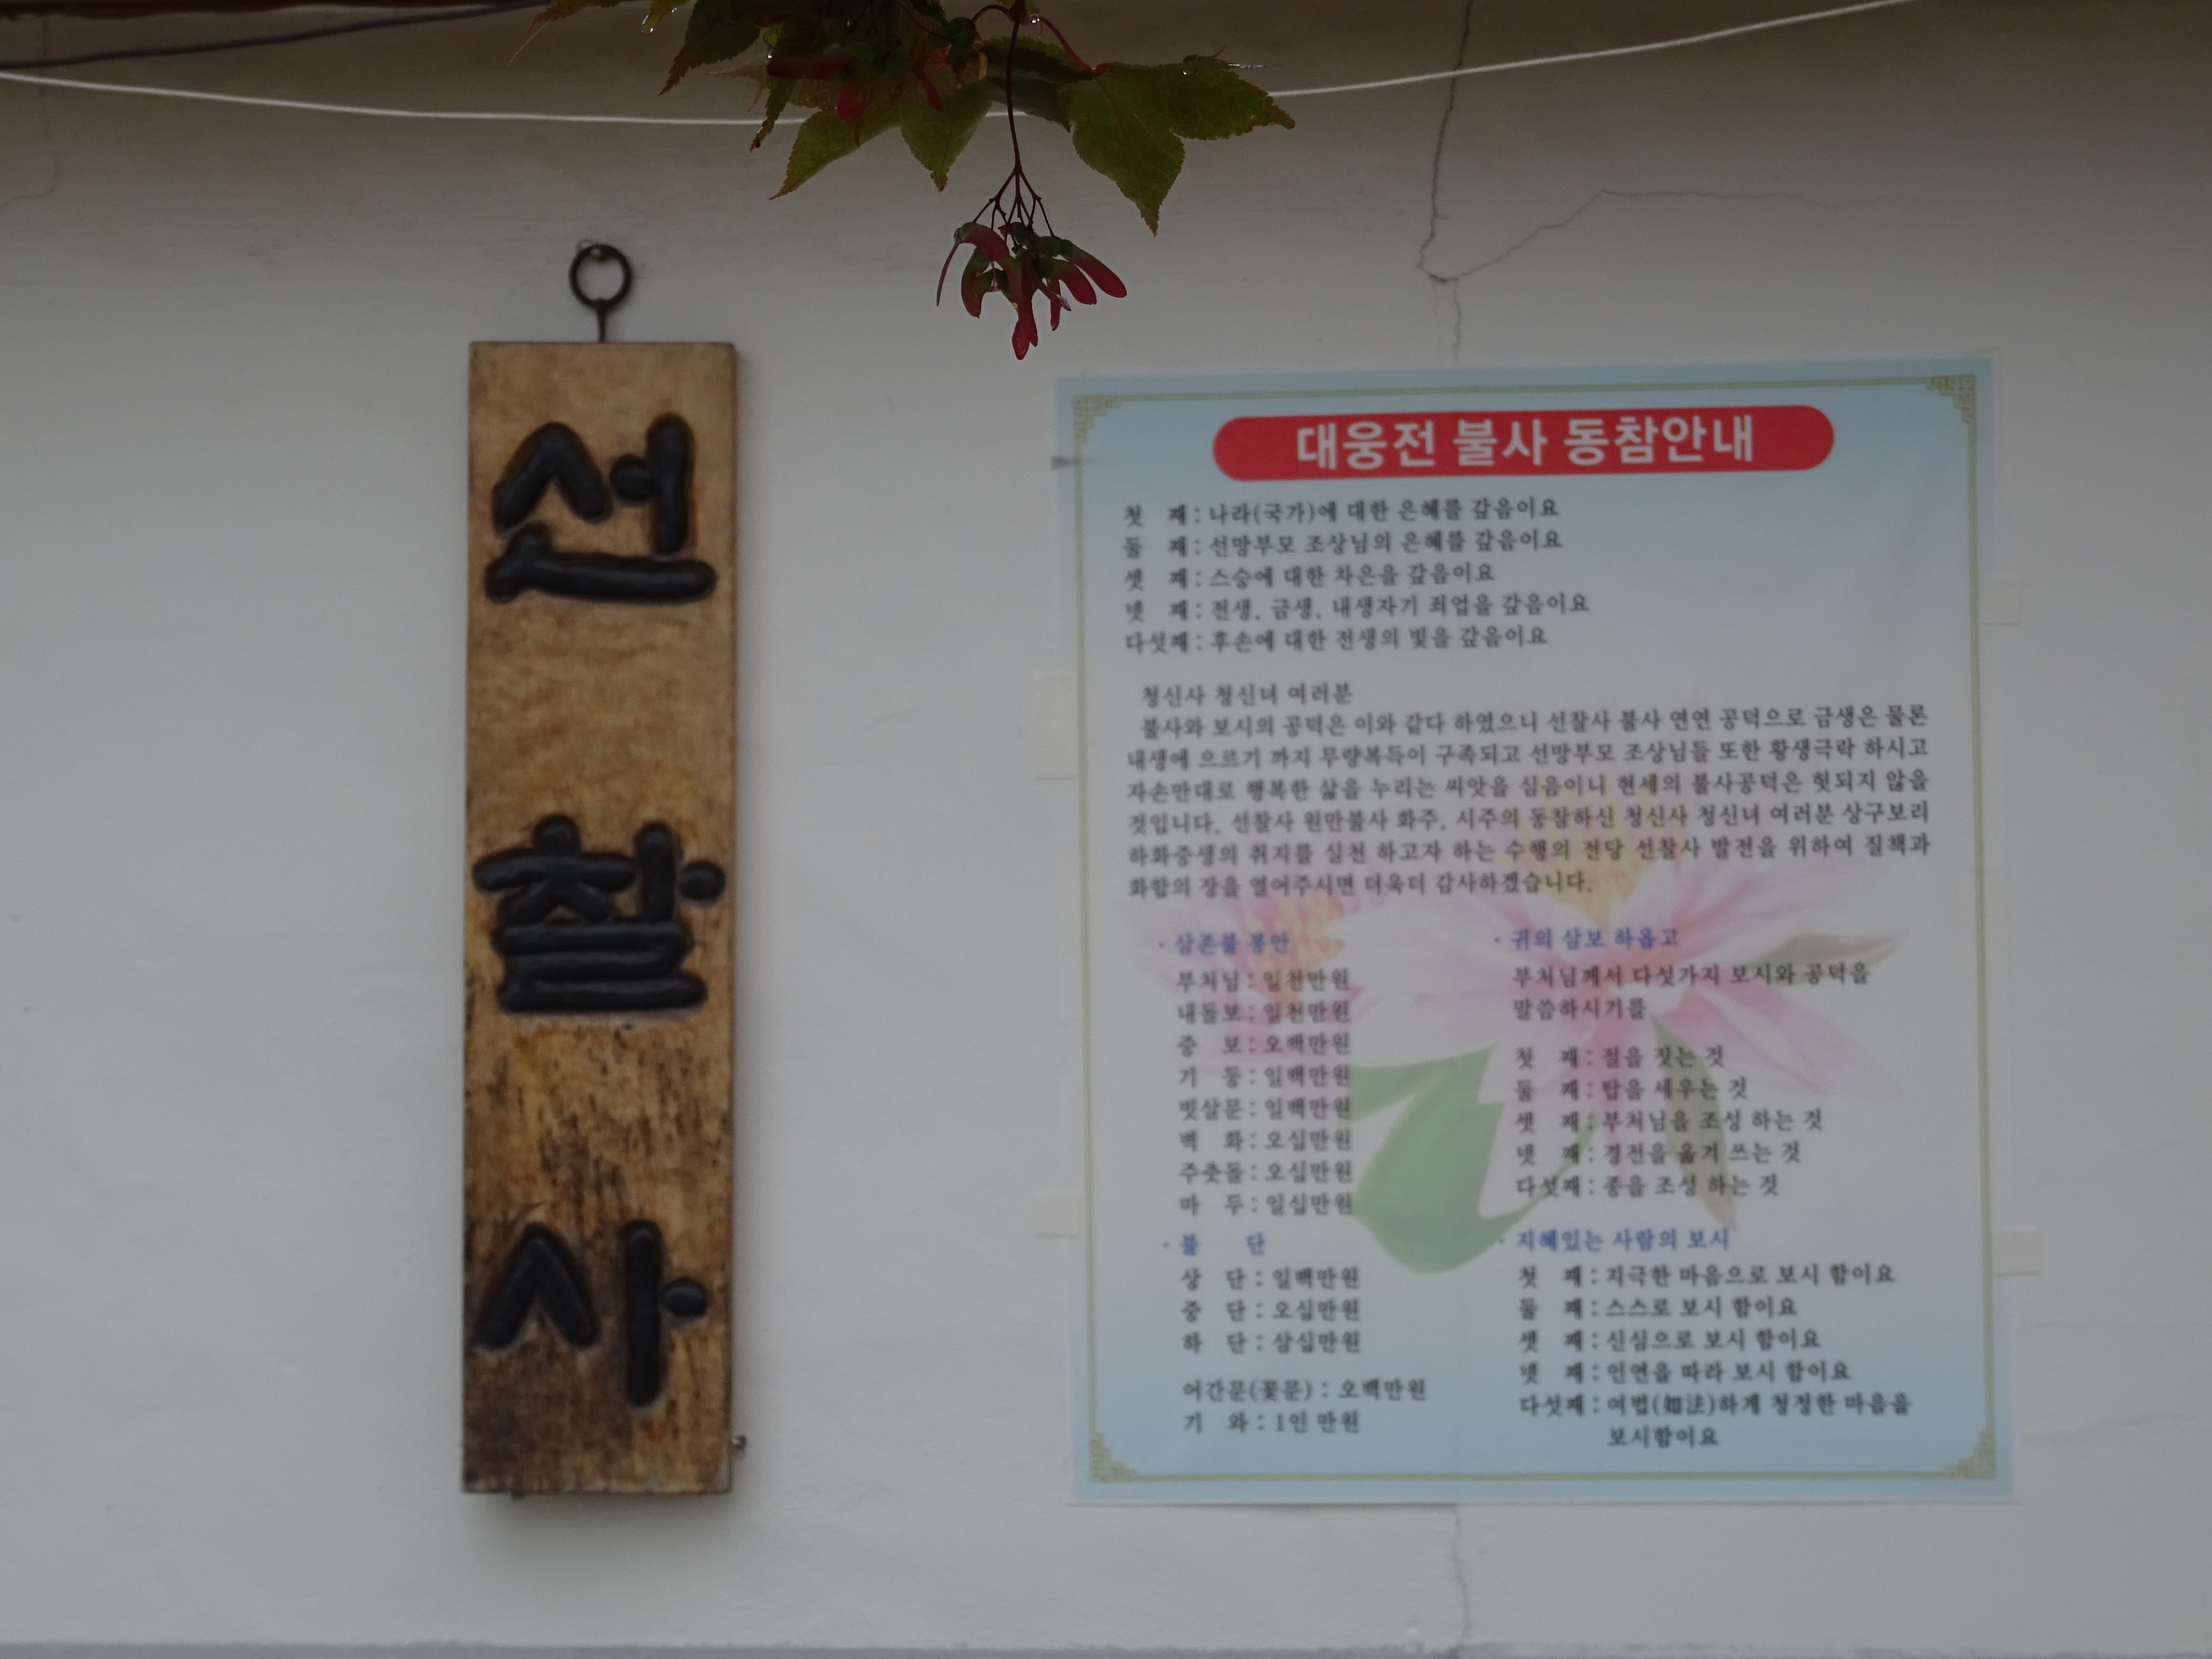 선찰사
대웅전 불사 동참안내
첫 째 : 나라(국가)에 대한 은혜를 갚음이요
둘 째 : 선망부모 조상님의 은혜를 갚음이요
셋 째 : 스승에 대한 차은을 갚음이요
넷 째 : 전생, 금생, 내생자기 죄업을 갚음이요
다섯째 : 후손에 대한 전생의 빛을 갚음이요
청신사 청신녀 여러분
불사와 보시의 공덕은 이와 같다 하였으니 선찰사 불사 연연 공덕으로 금생은 물론
내생에 으르기 까지 무량복득이 구족되고 선망부모 조상님들 또한 황생극락 하시고
자손만대로 행복한 삶을 누리는 씨앗을 심음이니 현세의 불사공덕은 헛되지 않을
것입니다. 선찰사 원만불사 화주, 시주의 동참하신 청신사 청신녀 여러분 상구보리
하화중생의 취지를 실천 하고자 하는 수행의 전당 선찰사 발전을 위하여 질책과
화합의 장을 열어주시면 더욱더 감사하겠습니다.
· 삼존불 봉안
부처님 : 일천만원
내들보 : 일천만원
중 보 : 오백만원
기 둥 : 일백만원
빗살문 : 일백만원
벽 화 : 오십만원
주춧돌 : 오십만원
마 두 : 일십만원
· 불 단
상 단 : 일백만원
중 단 : 오십만원
하 단 : 삼십만원
어간문(꽃문) : 오백만원
기 와 : 1인 만원
· 귀의 삼보 하옵고
부처님께서 다섯가지 보시와 공덕을
말씀하시기를
첫 째 : 절을 짓는 것
둘 째 : 탑을 세우는 것
셋 째 : 부처님을 조성 하는 것
넷 째 : 경전을 옮겨 쓰는 것
다섯째 : 종을 조성 하는 것
· 지혜있는 사람의 보시
첫 째 : 지극한 마음으로 보시 함이요
둘 째 : 스스로 보시 함이요
셋 째 : 신심으로 보시 함이요
넷 째 : 인연을 따라 보시 함이요
다섯째 : 여법(如法)하게 청정한 마음을
보시함이요